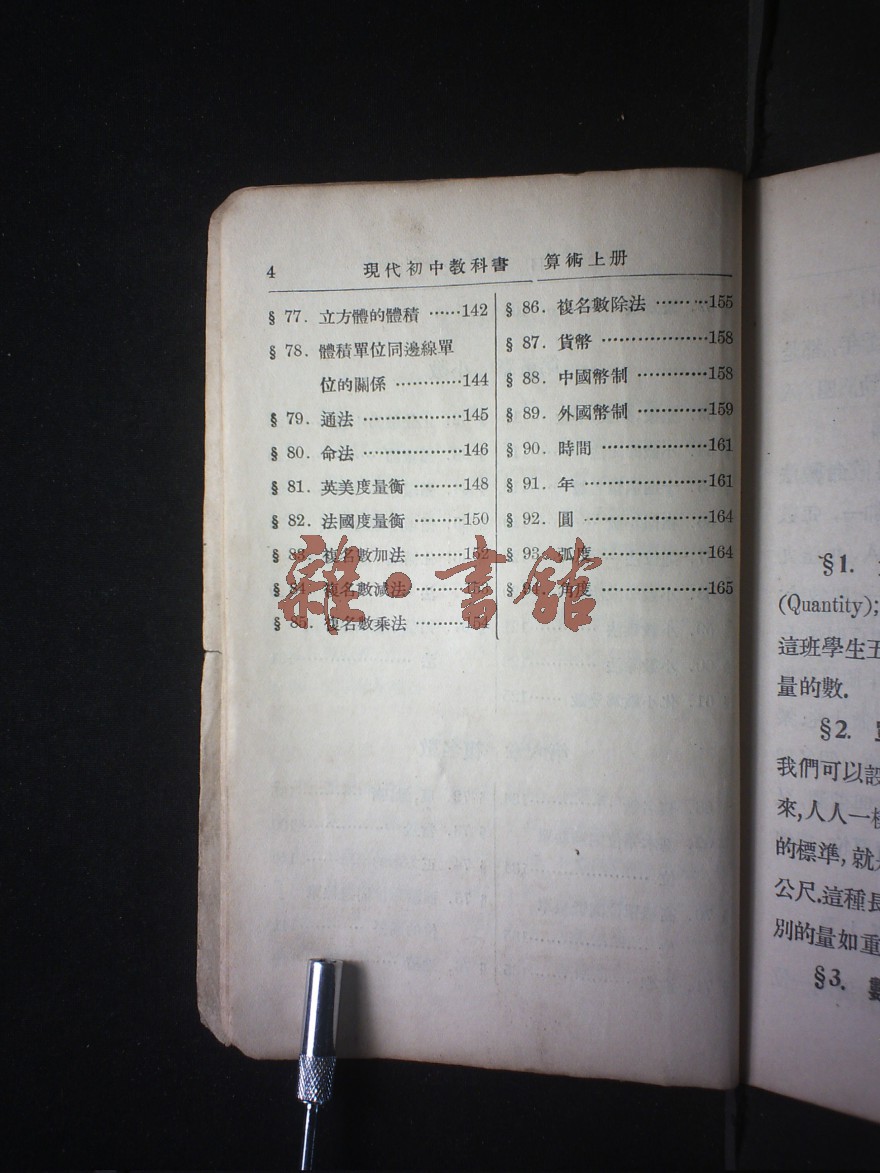 4 現代初中教科書 算術上册
§ 77. 立方體的體積 ······142
§ 78. 體積單位同邊線單
位的關係 ············144
§ 79. 通法 ··················145
§ 80. 命法 ··················146
§ 81. 英美度量衡 ·········148
§ 82. 法國度量衡 ·········150
§ 83. 複名數加法 ·········152
§ 84. 複名數減法 ·········
§ 85. 複名數乘法 ·········154
§ 86. 複名數除法 ·········155
§ 87. 貨幣 ···················158
§ 88. 中國幣制 ············158
§ 89. 外國幣制 ············159
§ 90. 時間 ···················161
§ 91. 年 ······················161
§ 92. 圓 ······················164
§ 93. 弧度 ···················164
§ 94. 角度 ···················165
雜·書館
§1.
(Quantity);
這班學生五
量的數.
§2.
我們可以設
來,人人一樣
的標準,就是
公尺.這種長
別的量如重
§3. 數